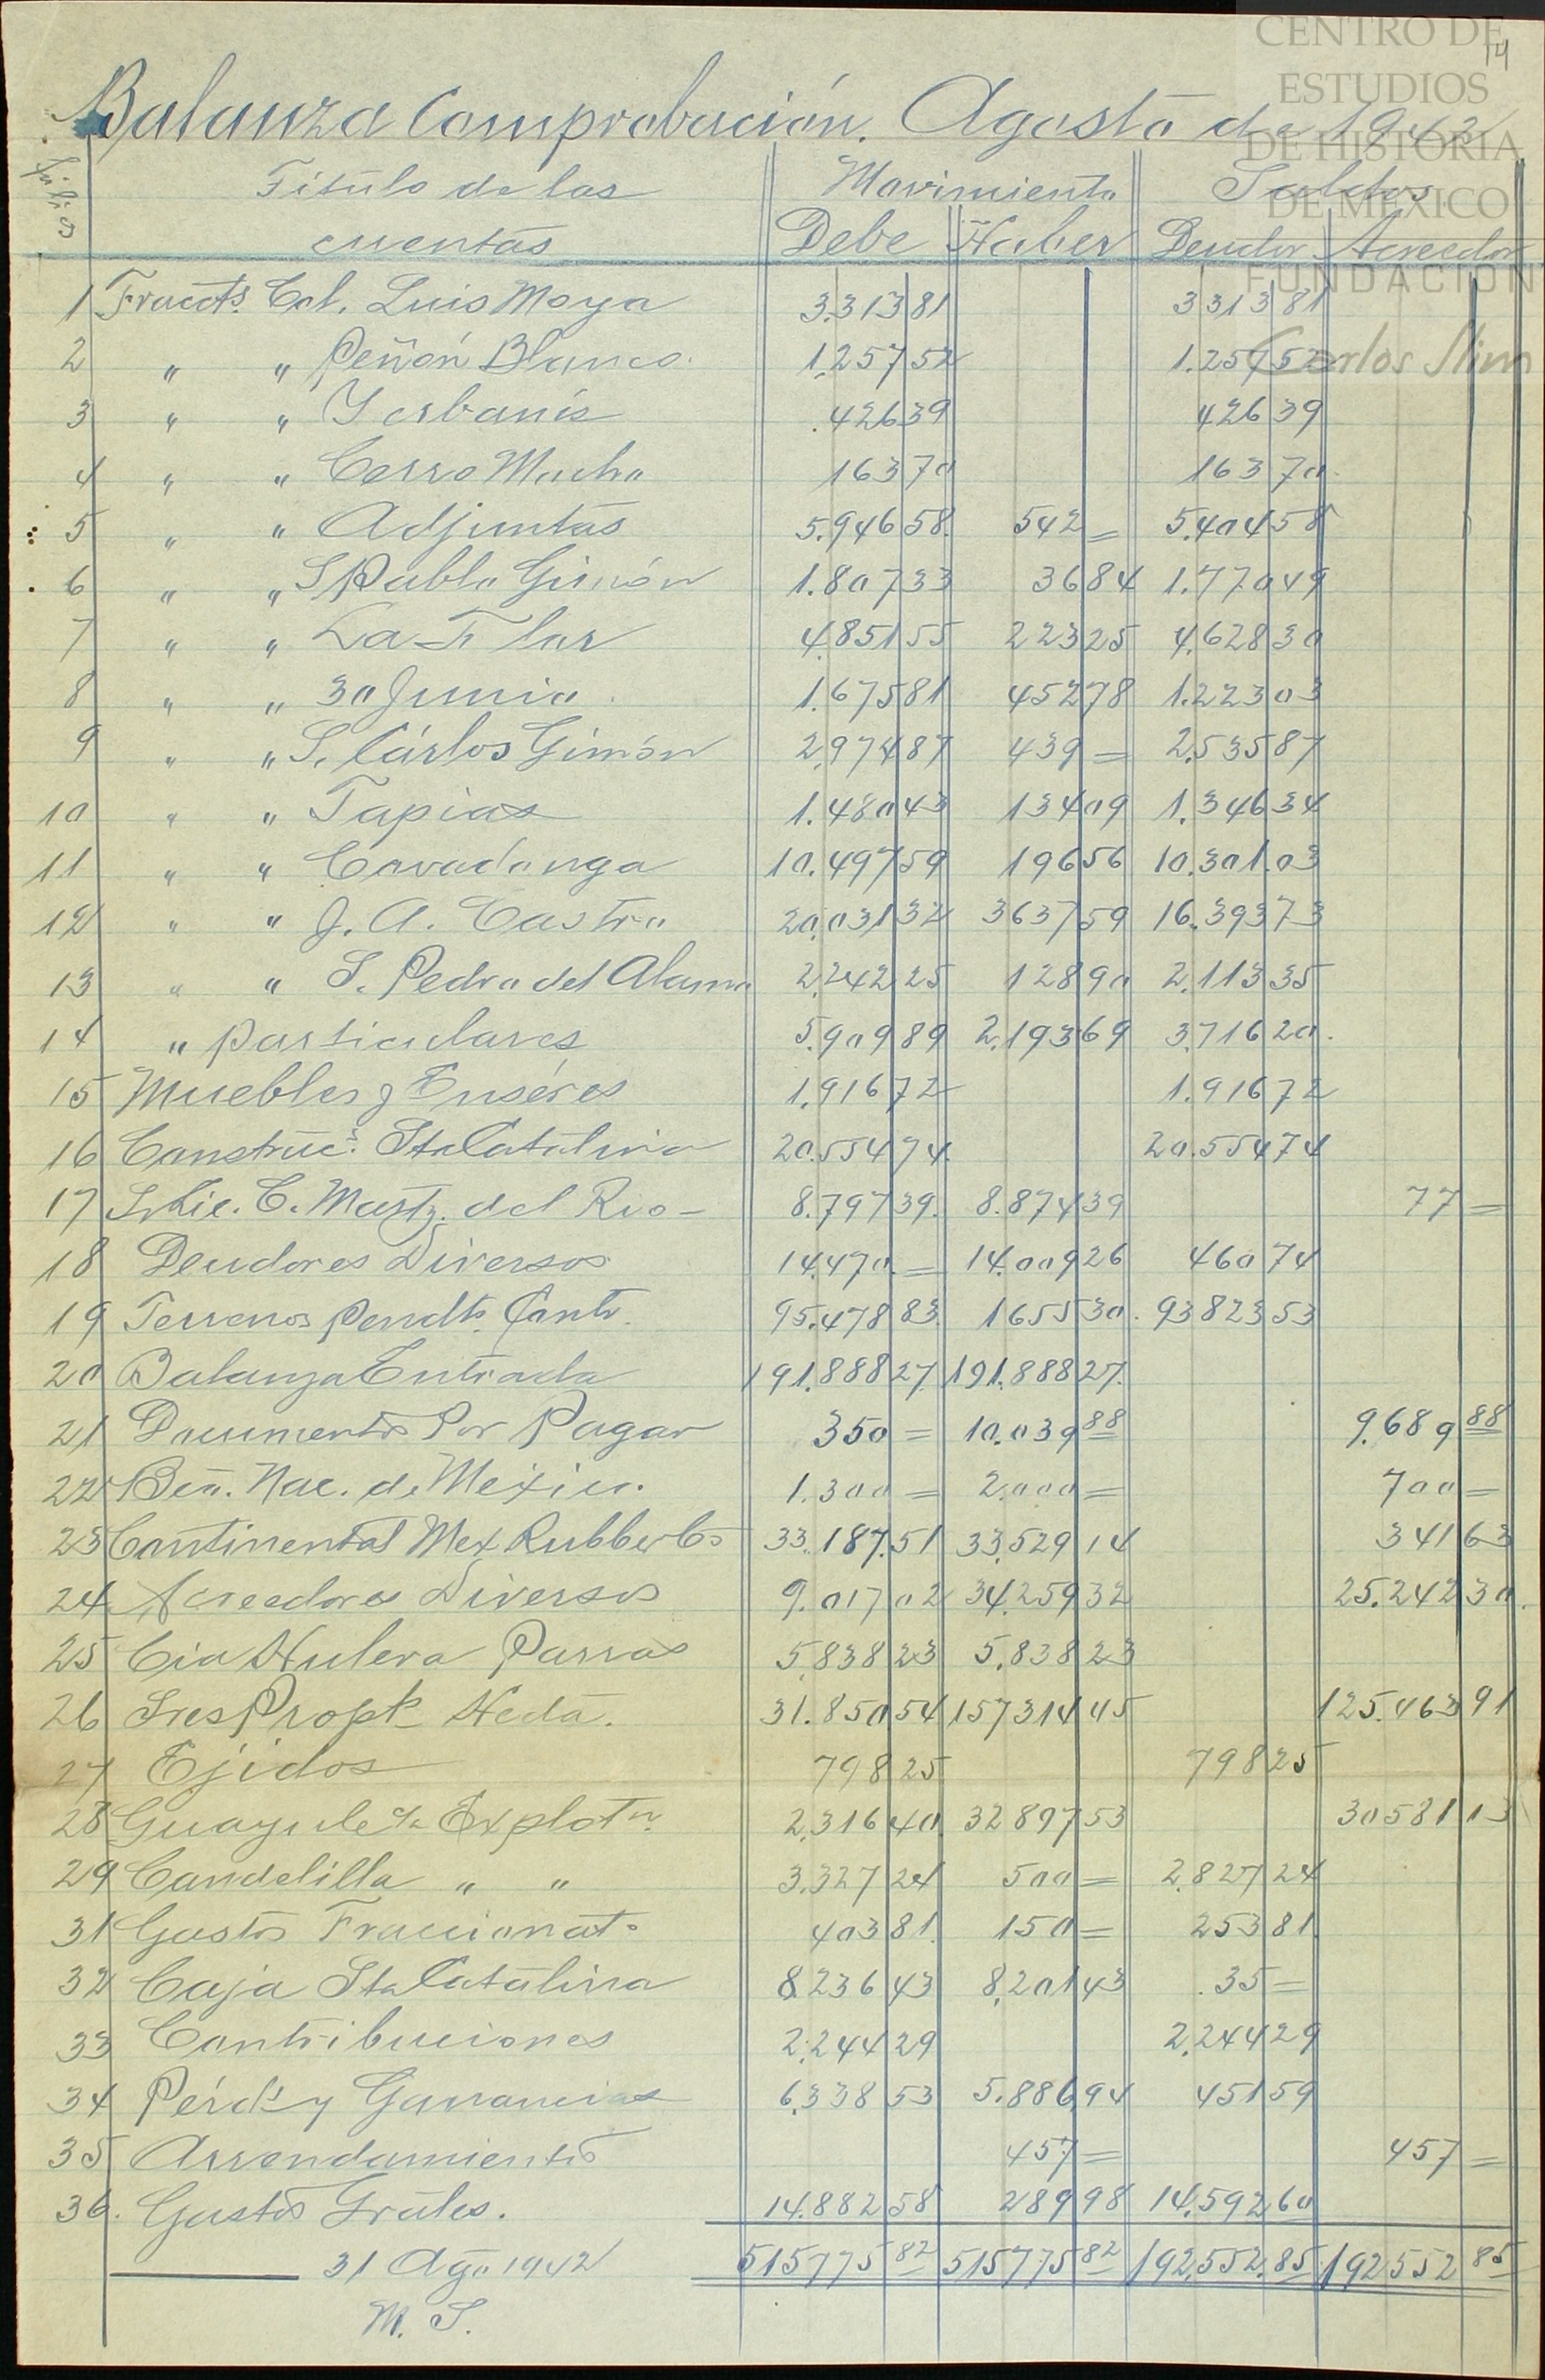 CENTRO DE
ESTUDIOS
DE HISTORIA
DE MEXICO
FUNDACION
Carlos Slim
14
Balanza Comprobación. Agosto de 1942
Folios Titulo de las cuentas Movimiento Saldos
Debe Haber Deudor Acreedor
1 Fracts. Col. Luis Moya 3.313 81 3313 81
2 " " Peñón Blanco. 1.257 52 1.257 52
3 " " Yerbanís 426 39 426 39
4 " " Cerro Mocho 163 70 163 70
5 " " Adjuntas 5.946 58 542 = 5.404 58
6 " " S Pablo Gimón 1.807 33 36 84 1.770 49
7 " " La Flor 4.851 55 223 25 4.628 30
8 " " 30 Junio 1.675 81 452 78 1.223 03
9 " " S. Cárlos Gimón 2.974 87 439 = 2.535 87
10 " " Tapias 1.480 43 134 09 1.346 34
11 " " Covadonga 10.497 59 196 56 10.301.03
12 " " J. A. Castro 20.031 32 3637 59 16.393 73
13 " " S. Pedro del Alamo 2.242 25 128 90 2.113 35
14 " particulares 5.909 89 2.193 69 3.716 20
15 Muebles y Enséres 1.916 72 1.916 72
16 Construcs. Sta Catalina 20.554 74 20.554 74
17 Sr Lic. C. Martz. del Rio - 8.797 39 8.874 39 77 =
18 Deudores Diversos 14.470 = 14.009 26 460 74
19 Terrenos Pendts. Contr. 95.478 83 1655 30 93823 53
20 Balanza Entrada 191.888 27 191.888 27
21 Documentos Por Pagar 350 = 10.039 88 9.689 88
22 Bco. Nac. de México. 1.300 = 2.000 = 700 =
23 Continental Mex. Rubber Co 33.187.51 33.529 14 341 63
24 Acreedores Diversos 9.017 02 34.259 32 25.242 30
25 Cia Hulera Parras 5.838 23 5.838 23
26 Sres Propts Hcda. 31.850 54 157314 45 125.463 91
27 Ejidos 798 25 798 25
28 Guayule Explotn. 2.316 40 32897 53 30581 13
29 Candelilla " " 3.327 24 500 = 2.827 24
31 Gastos Fraccionato 403 81 150 = 253 81
32 Caja Sta Catalina 8.236 43 8.201 43 35 =
33 Contribuciones 2.244 29 2.244 29
34 Pérds y Ganancias 6.338 53 5.886,94 451 59
35 Arrendamientos 457 = 457 =
36. Gastos Grales. 14.882 58 289 98 14.592 60
31 Ago 1942 515775 82 515775 82 192.552.85 192552 85
M. S.